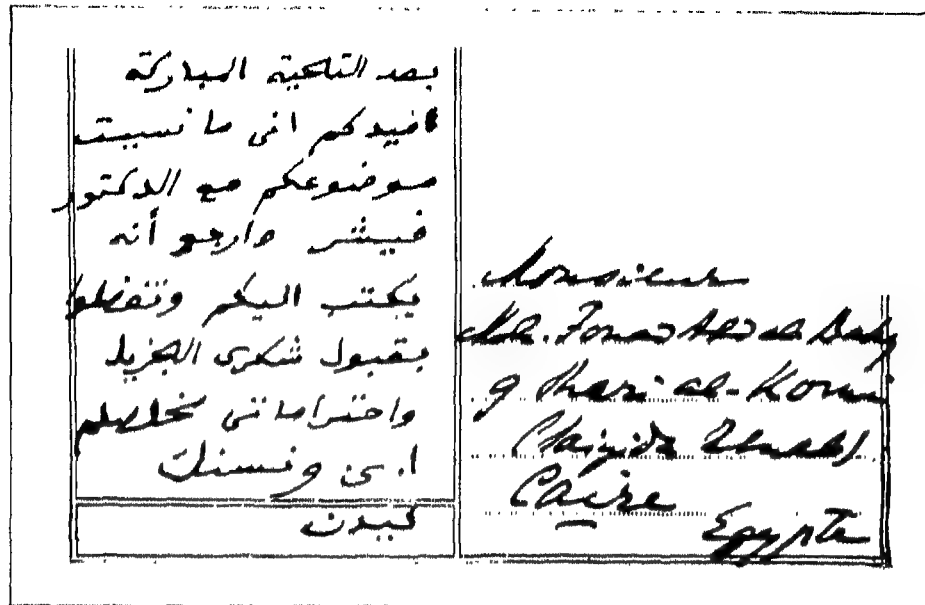 بعد التحية المباركة
افيدكم انى ما نسيت
موضوعكم مع الدكتور
فيشر وارجو أنه
يكتب اليكم وتتفضلوا
بقبول شكرى الجزيل
واحتراماتى مخلصكم
ا. ى ونسنك
ليدن
Monsieur
Moh. Fouad Abd al-Baky
9 Shari al-
(Saiyida Zeinab)
Caire
Egypte